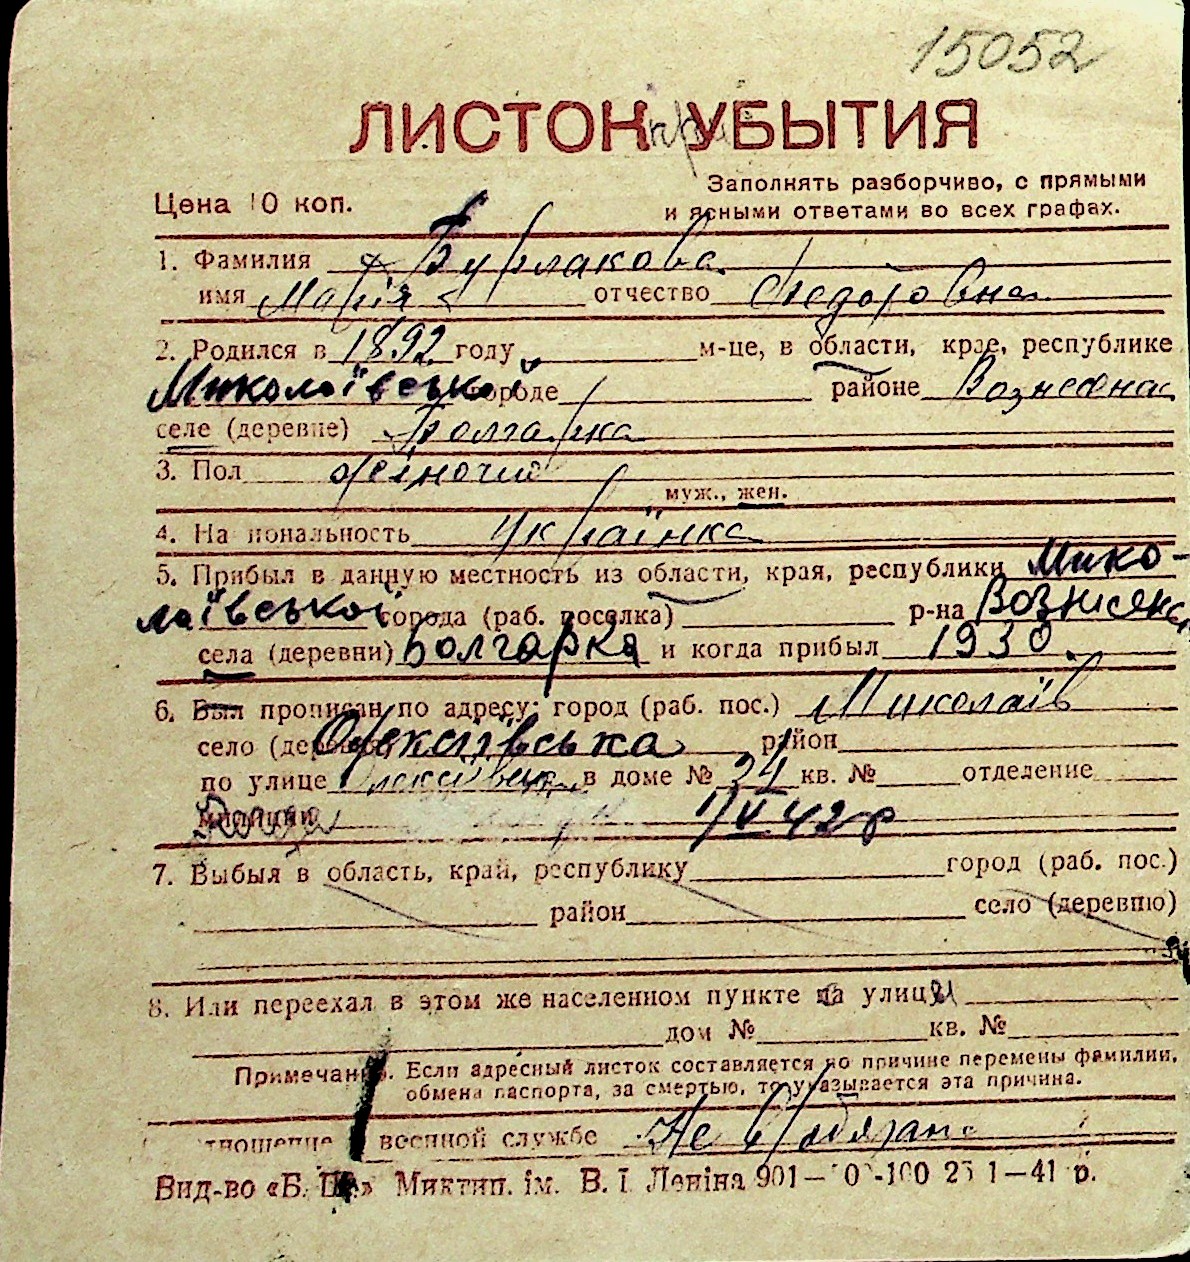 15052
ЛИСТОК при УБЫТИЯ
Цена 10 коп.
Заполнять разборчиво, с прямыми
и ясными ответами во всех графах.
1. Фамилия Бурлакова
имя Марія отчество Федоровна
2. Родился в 1892 году м-це, в области, крае, республике
Миколаївської городе районе
селе (деревне) Болгарка
3. Пол жіночий
муж., жен.
4. Национальность Українка
5. Прибыл в данную местность из области, края, республики Мико-
лаївської города (раб. поселка) р-на
села (деревни) Болгарка и когда прибыл 1930
6. Был прописан по адресу: город (раб. пос.) Миколаїв
село (деревня) Олексіївська район
по улице в доме № 24 кв. № отделение
милиции 1/VI 42 р
7. Выбыл в область, край, республику город (раб. пос.)
район село (деревню)
8. Или переехал в этом же населенном пункте на улицы
дом № кв. №
Примечание. Если адресный листок составляется по причине перемены фамилии,
обмена паспорта, за смертью, то указывается эта причина.
тношение военной службе Не
Вид-во «Б. » Миктип. ім. В. І. Леніна 901— -100 1—41 р.